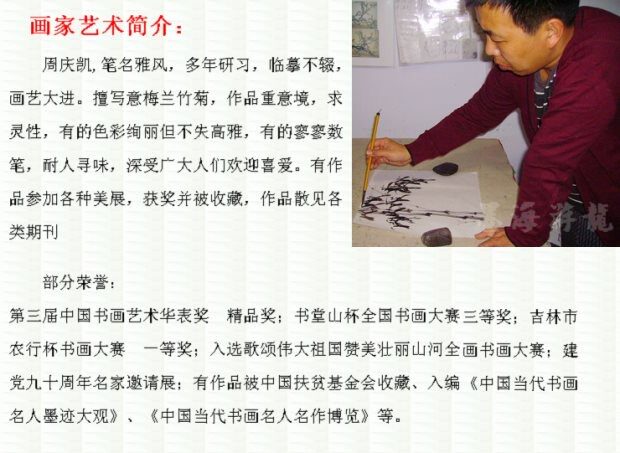 画家艺术简介：
周庆凯,笔名雅风，多年研习，临摹不辍，
画艺大进。擅写意梅兰竹菊，作品重意境，求
灵性，有的色彩绚丽但不失高雅，有的寥寥数
笔，耐人寻味，深受广大人们欢迎喜爱。有作
品参加各种美展，获奖并被收藏，作品散见各
类期刊
海游龍
部分荣誉：
第三届中国书画艺术华表奖 精品奖；书堂山杯全国书画大赛三等奖；吉林市
农行杯书画大赛 一等奖；入选歌颂伟大祖国赞美壮丽山河全画书画大赛；建
党九十周年名家邀请展；有作品被中国扶贫基金会收藏、入编《中国当代书画
名人墨迹大观》、《中国当代书画名人名作博览》等。